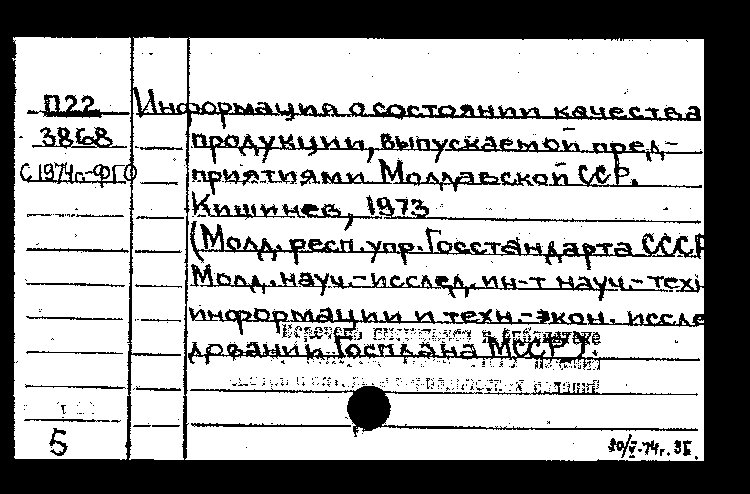 П22
3868
С 1974г-ФГО
Информация о состоянии качества
продукции, выпускаемой пред-
приятиями Молдавской ССР.
Кишинев, 1973
(Молд. респ. упр. Госстандарта СССР
Молд. науч.-исслед. ин-т науч.-техн
информации и техн.-экон. иссле
довании Госплана МССР).
Перечень имеющихся в библиотеке
изданий
5
30/V-74г.